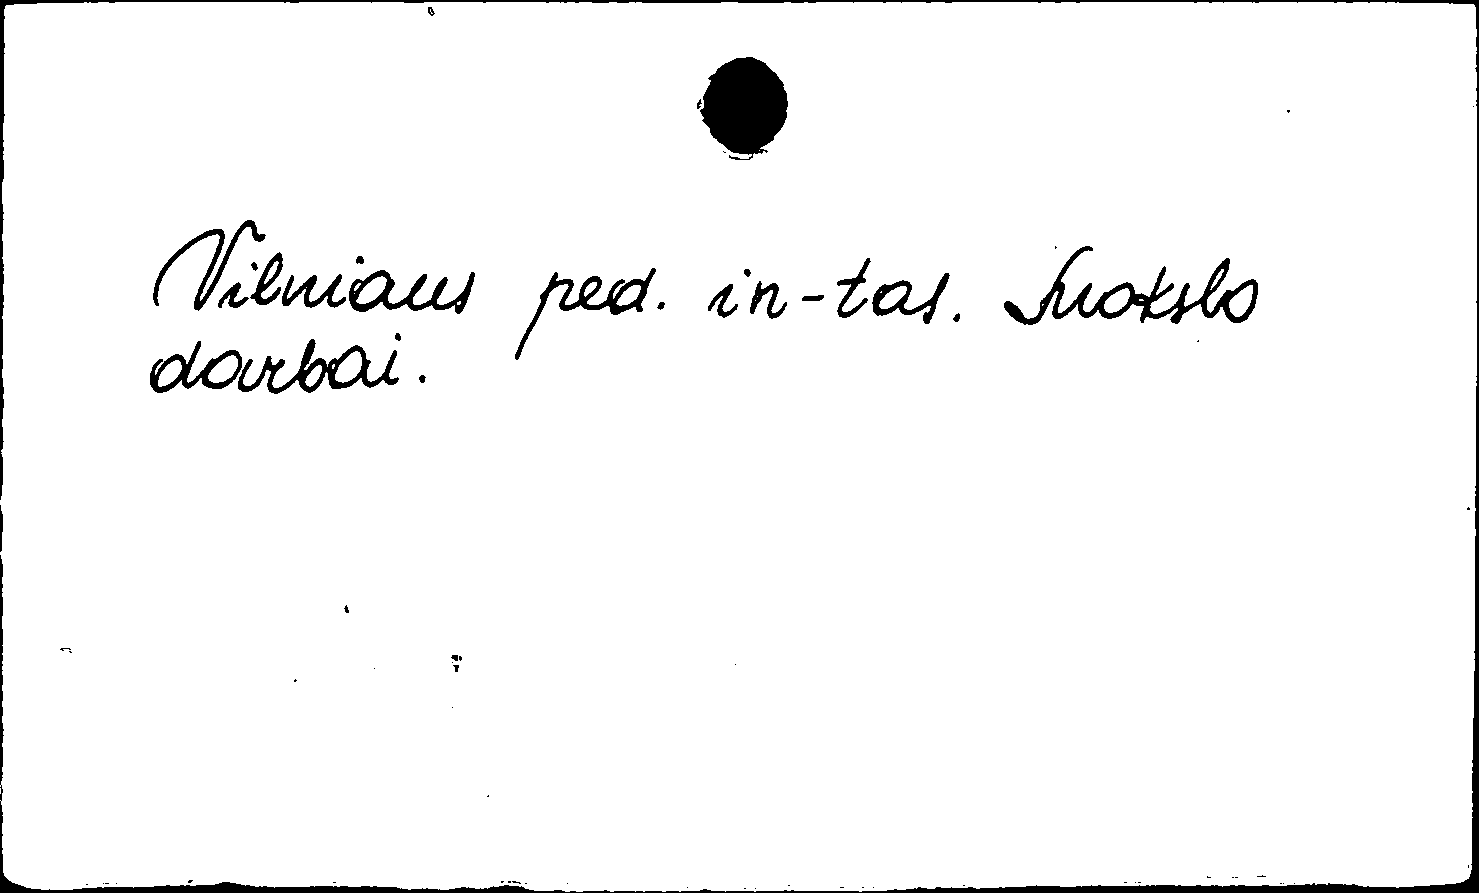 Vilniaus ped. in-tas. Mokslo
darbai.